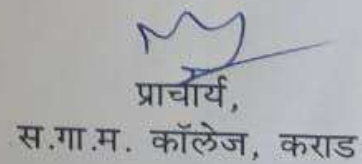 प्राचार्य,
स.गा.म. कॉलेज, कराड